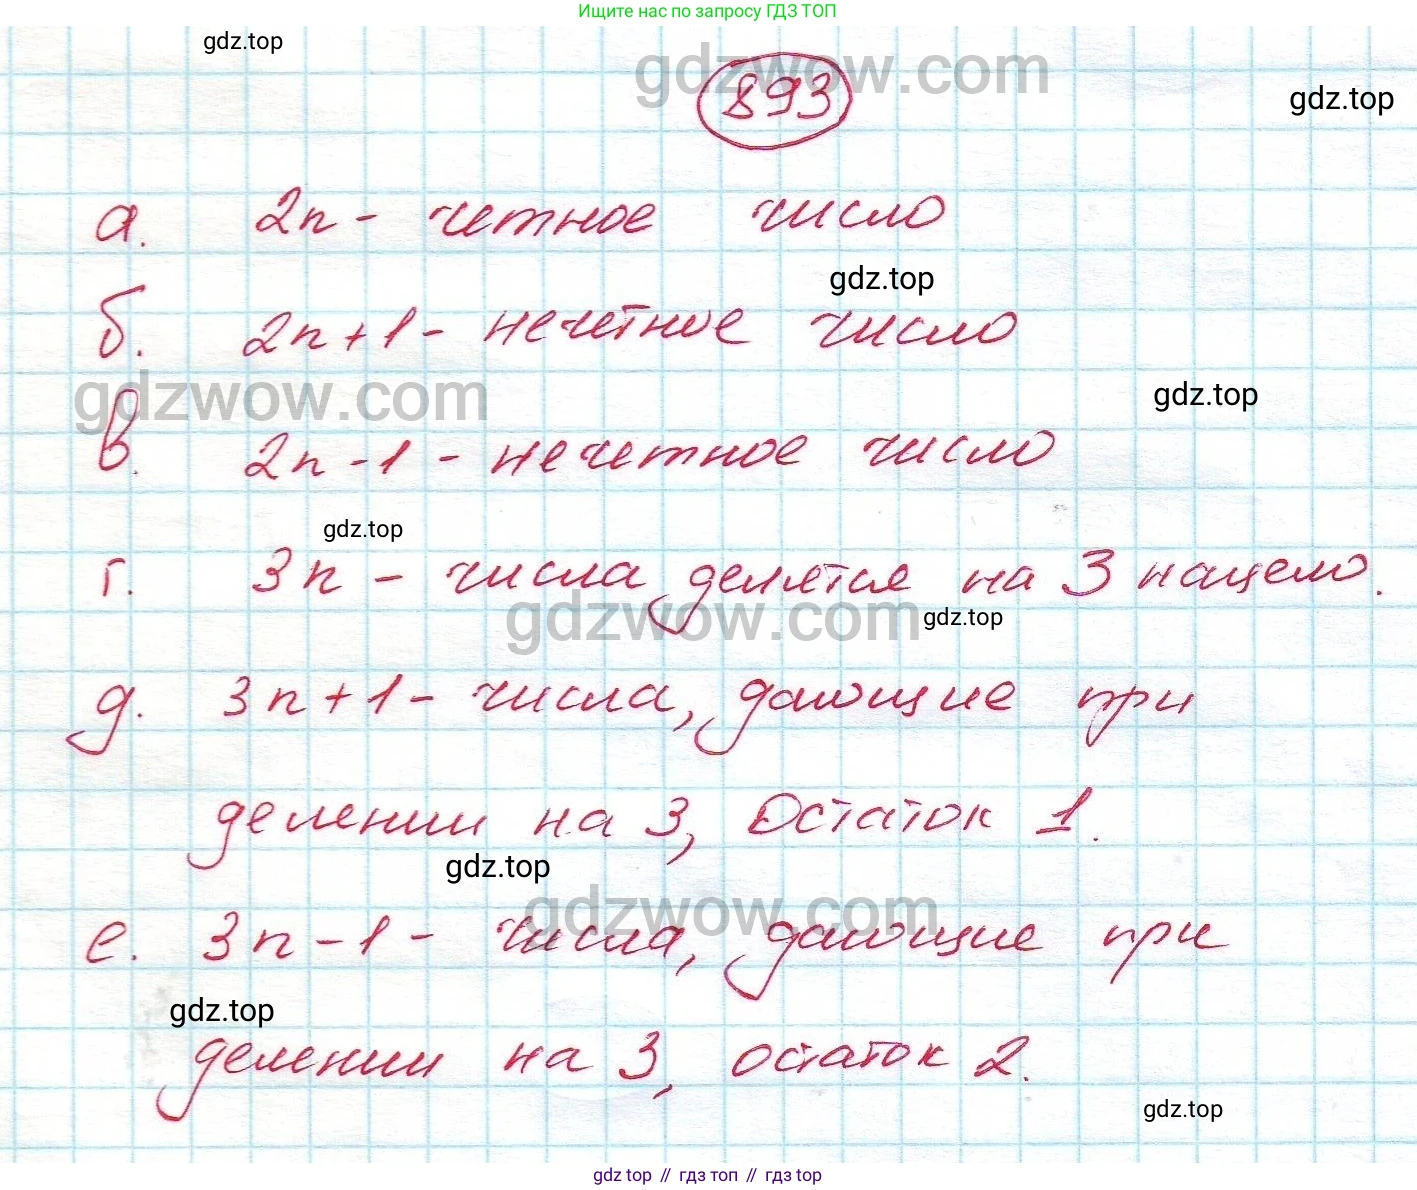 Ищите нас по запросу ГДЗ ТОП
gdz.top
gdzwow.com
893
gdz.top
а. 2n - четное число
gdz.top
б. 2n+1 - нечетное число
gdzwow.com
gdz.top
в. 2n-1 - нечетное число
gdz.top
г. 3n - числа делятся на 3 нацело.
gdzwow.com
gdz.top
д. 3n+1 - числа, дающие при
делении на 3, остаток 1.
gdz.top
gdzwow.com
е. 3n-1 - числа, дающие при
gdz.top
делении на 3, остаток 2.
gdz.top
gdz top // гдз топ // гдз top